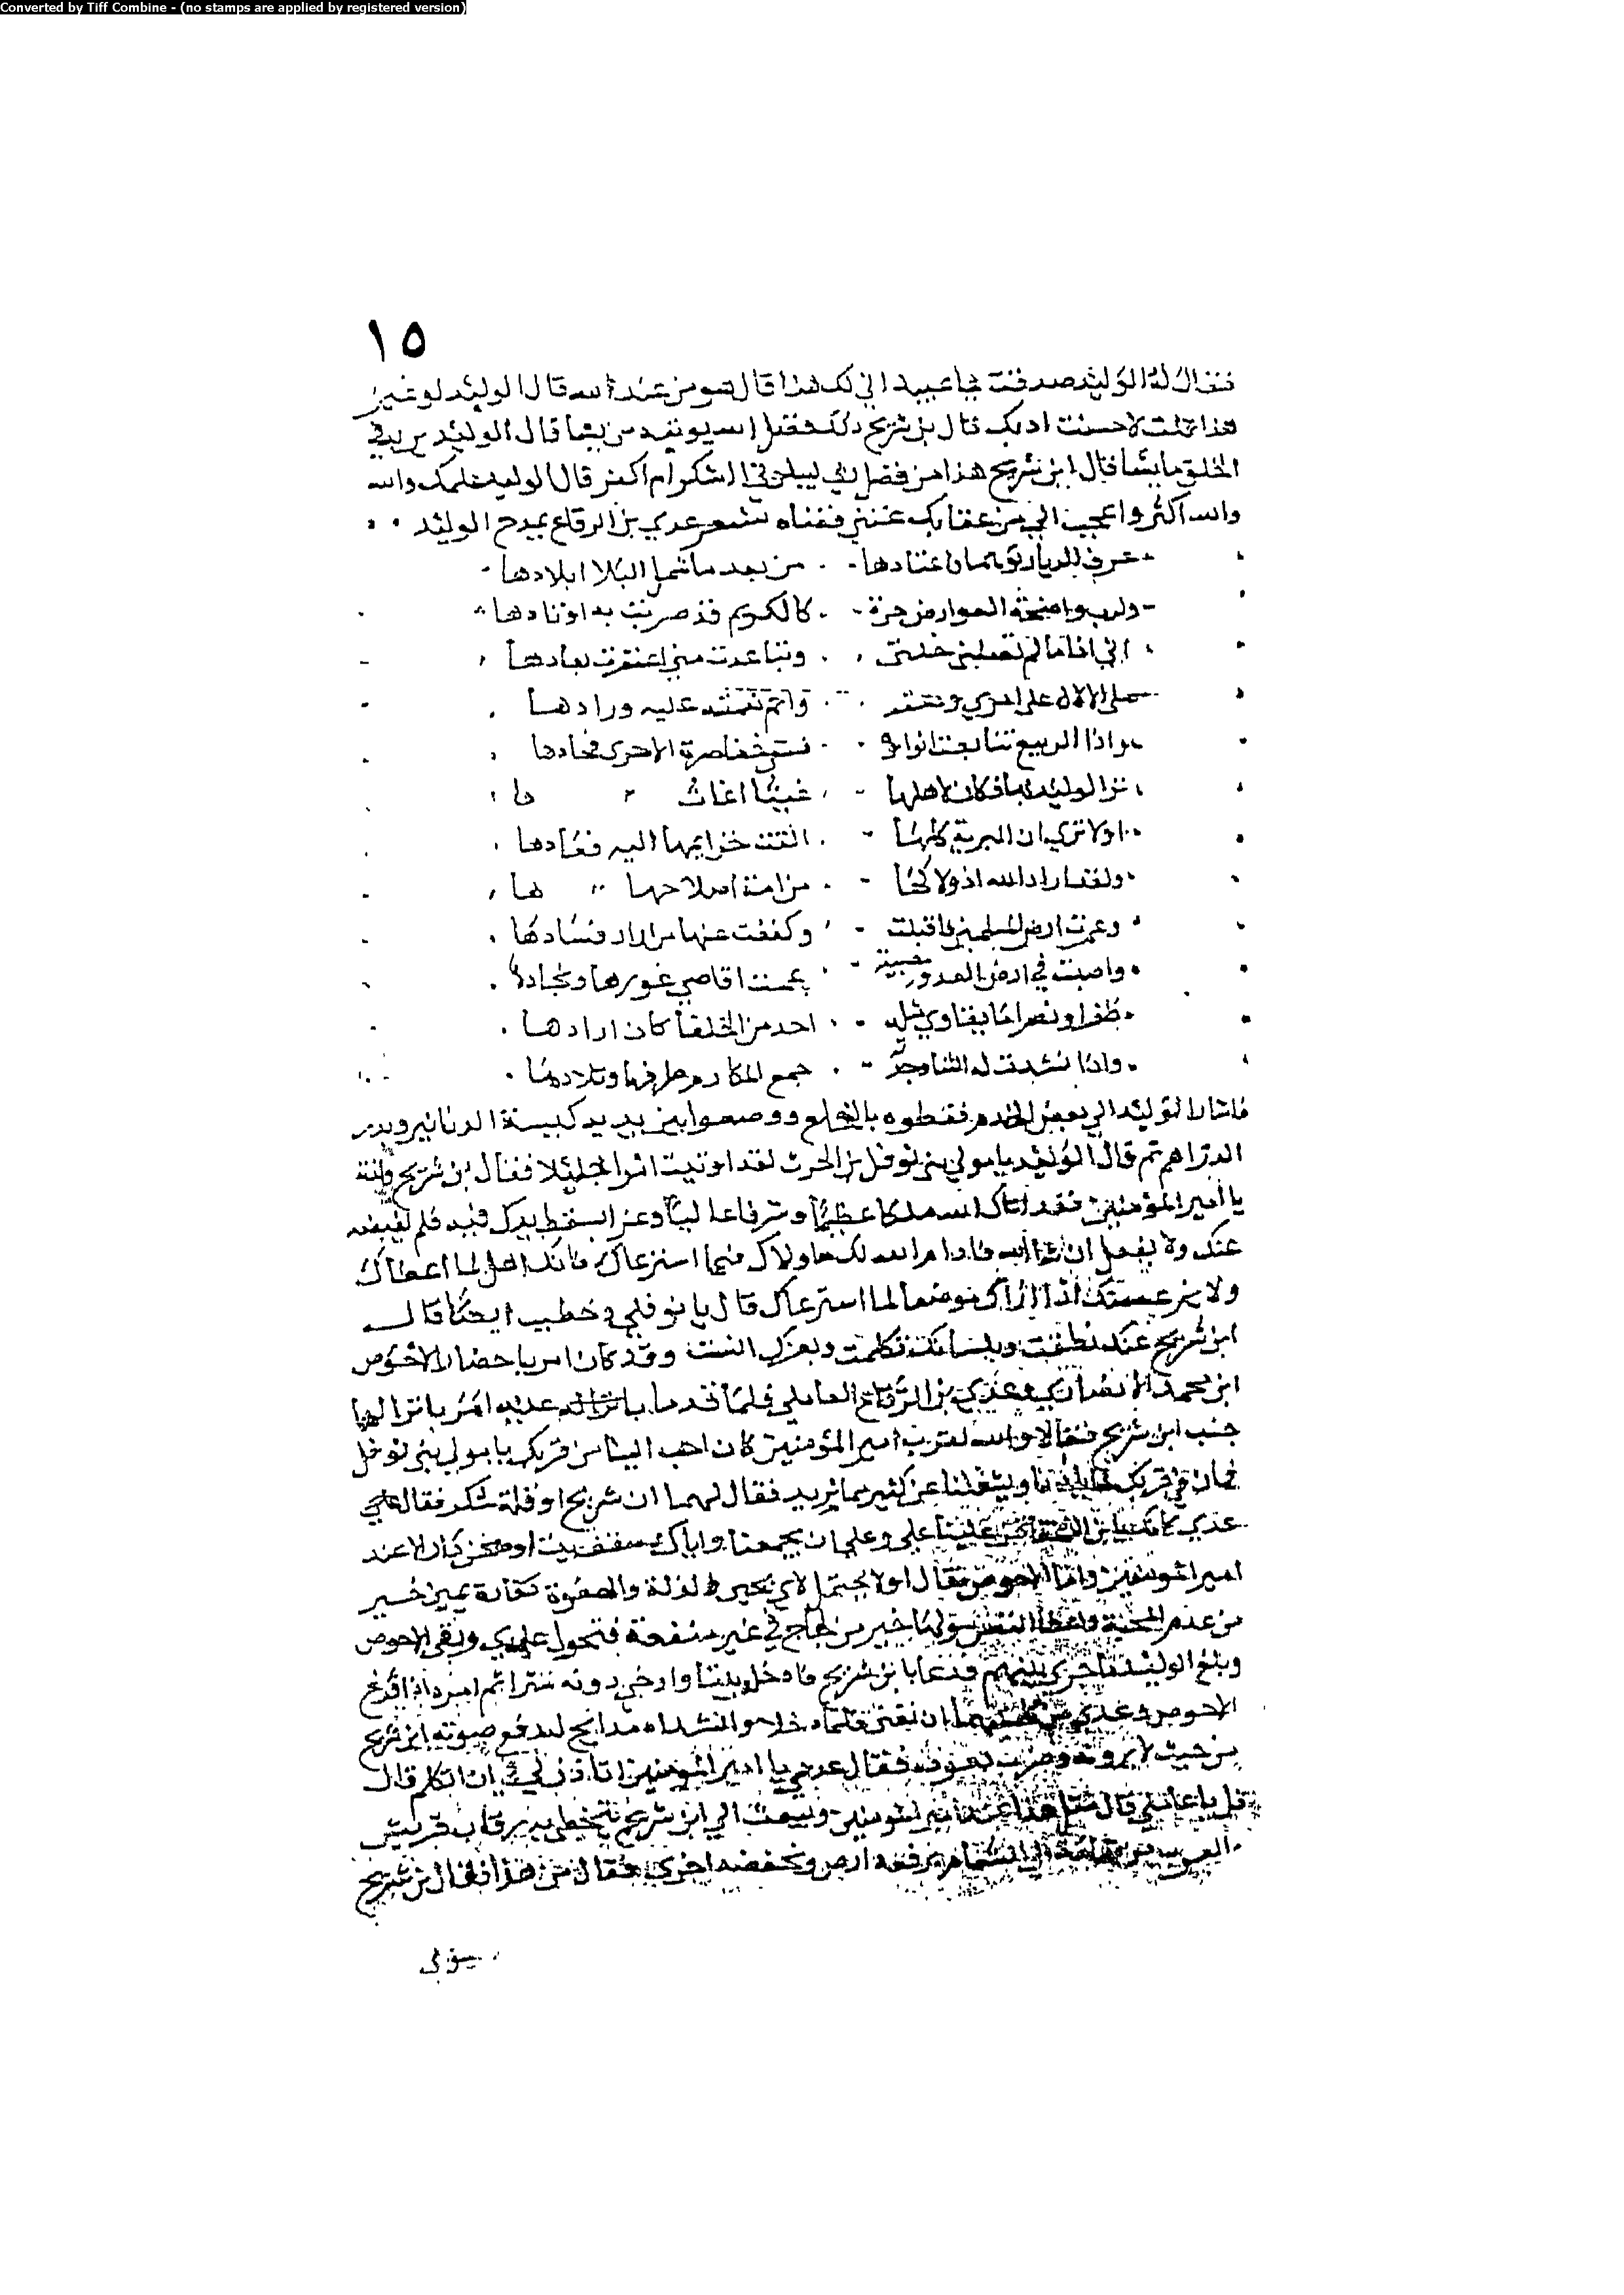 Converted by Tiff Combine - (no stamps are applied by registered version)
١٥
فقال له الوليد صدقت يا عبيد اني لك هذا قال هو من عند الله قال الوليد لو غير
هذا قلت لاحسنت ادبك قال بن شريح ذلك فضل الله يوتيه من يشا قال الوليد يزيد في
الخلق ما يشا قال ابن شريح هذا من فضل ربي ليبلوني اشكر ام اكفر قال الوليد علمك والله
والله اكثر واعجب الي من غنايك غنني فغناه بشعر عدي بن الرقاع يمدح الوليد
عرف الديار توهما فاعتادها من بعد ما شمل البلا ابلادها
ولرب واضحة العوارض حرة كالريم قد ضربت به اوتادها
اني اذا ما لم تصلني خلتي وتباعدت مني اغتفرت بعادها
صلى الاله على امري ودعته واتم نعمته عليه وزادها
واذا الربيع تتابعت انواوه فسقى خناصرة الاحرى فجادها
نزل الوليد بها فكان لاهلها غيثا اغاث ها
اولا ترى ان البرية كلها القت خزايمها اليه فقادها
ولقد اراد الله اذ ولاكها من امة اصلاحها ها
وعمرت ارض المسلمين فاقبلت وكففت عنها من اراد فسادها
واصبت في ارض العدو مصيبة عمت اقاصي غورها ونجادها
ظفرا ونصرا ما يناوي مثله احد من الخلفا كان ارادها
واذا نشدت له الثنا وجدته جمع المكارم طرفها وتلادها
فاشار الوليد الى بعض الخدم فغطوه بالخلع ووضعوا بين يديه كيسة الدنانير وبدر
الدراهم ثم قال الوليد يا مولي بني نوفل بن الحرث لقد اوتيت امرا جليلا فقال بن شريح وانت
يا امير المؤمنين فقد اتاك الله ملكا عظيما وشرفا عاليا وعزا بسط يدك فيه فلم يقبضه
عنك ولا يفعل ان شا الله فادام الله لك ما ولاك فيما استرعاك فانك اهل لما اعطاك
ولا نزعه منك اذا راك موضعا لما استرعاك قال يا نوفلي وخطيب ايضا قال
ابن شريح عنك نطقت وبلسانك تكلمت وبعزك وقد كان امر باحضار الاحوص
ابن محمد الانصاري وعدي بن الرقاع العاملي فلما قدما عليه امر بانزالهما
جنب ابن شريح فقالا والله لقرب امير المؤمنين كان احب الينا من قربك يا مولي بني نوفل
فان في قربك لما يلذنا ويشغلنا عن كثير مما نريد فقال لهما ابن شريح او قلة شكر فقال
عدي كانك يا بن علينا علي وعلي ان يجمعنا واياك سقف بيت او صحن دار الا عند
امير المؤمنين واما الاحوص فقال اولا يحتمل لابي يحيى الزلة والهفوة كفارة يمين خير
من عدم المحبة واعطا النفس سولها خير من لجاج في غير منفعة فتحول عدي وبقي الاحوص
وبلغ الوليد ما جرى بينهم فدعا بابن شريح فادخله بيتا وارخى دونه سترا ثم امره اذا فرغ
الاحوص وعدي من ان يغني فلما دخلا وانشداه مدايح له رفع صوته ابن شريح
من حيث لا يرونه وضرب بعوده فقال عدي يا امير المؤمنين اتاذن لي ان اتكلم قال
قل يا عاملي قال مثل هذا عند امير المؤمنين ويبعث الى ابن شريح يتخطى به رقاب قريش
والعرب من تهامة الى الشام ترفعه ارض وتخفضه اخرى فقال من هذا فيقال بن شريح